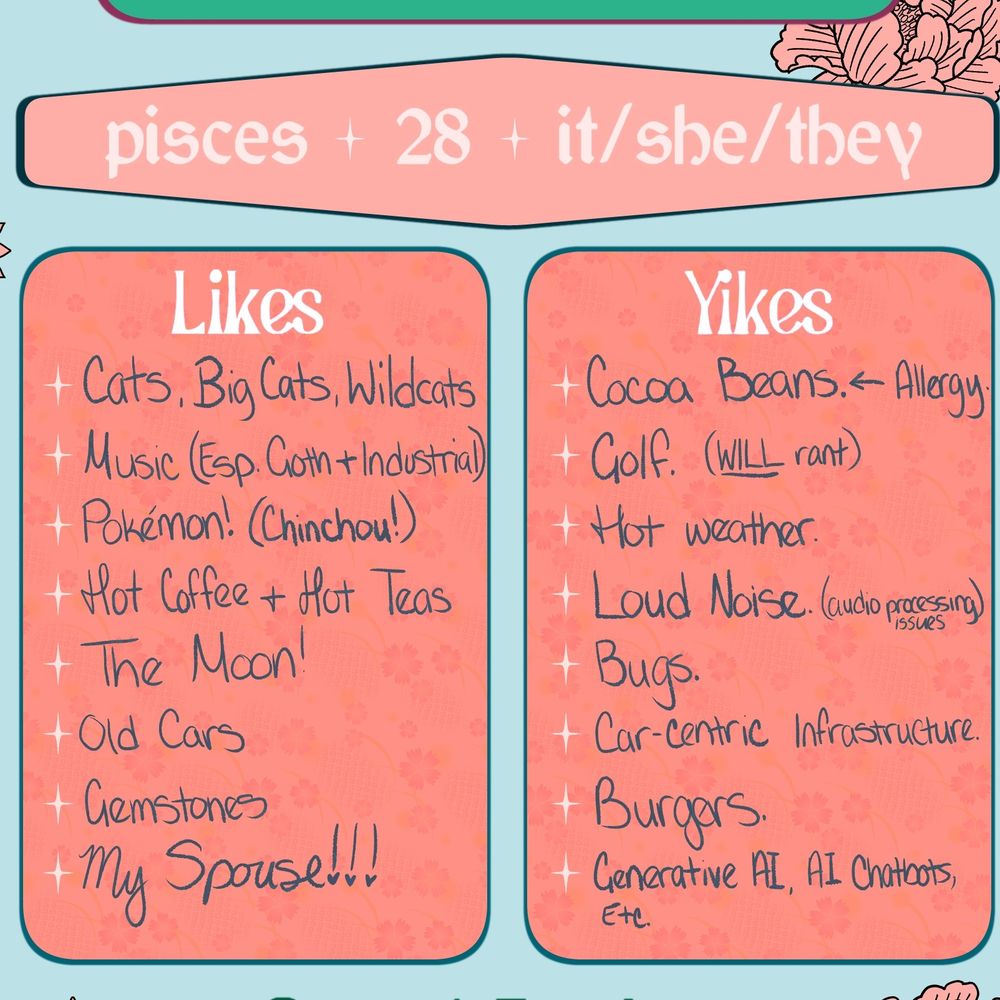 pisces + 28 + it/she/they
Likes
Cats, Big Cats, Wildcats
Music (Esp. Goth + Industrial)
Pokémon! (Chinchou!)
Hot Coffee + Hot Teas
The Moon!
Old Cars
Gemstones
My Spouse!!!
Yikes
Cocoa Beans. ← Allergy.
Golf. (WILL rant)
Hot weather.
Loud Noise. (audio processing
issues)
Bugs.
Car-centric Infrastructure.
Burgers.
Generative AI, AI Chatbots,
Etc.